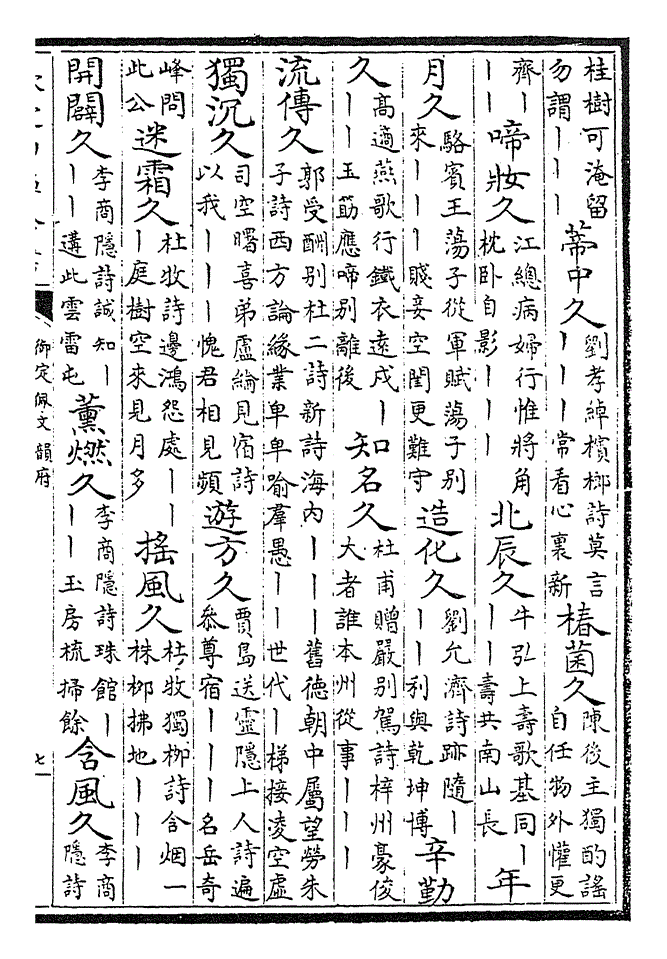 桂樹可淹留
勿謂｜｜｜
蒂中久
劉孝綽檳榔詩莫言
｜｜｜常看心裏新
椿菌久
陳後主獨酌謠
自任物外懽更
齊｜
｜｜
啼妝久
江總病婦行惟將角
枕卧自影｜｜｜
北辰久
牛弘上壽歌基同｜
｜｜壽共南山長
年
月久
駱賓王蕩子從軍賦蕩子别
來｜｜｜賤妾空閨更難守
造化久
劉允濟詩跡隨｜
｜｜利與乾坤博
辛勤
久
高適燕歌行鐵衣遠戍｜
｜｜玉筯應啼别離後
知名久
杜甫贈嚴别駕詩梓州豪俊
大者誰本州從事｜｜｜
流傳久
郭受酬别杜二詩新詩海内｜｜｜舊德朝中屬望勞朱
子詩西方論緣業卑卑喻羣愚｜｜世代｜梯接凌空虛
獨沉久
司空曙喜弟盧綸見宿詩
以我｜｜｜愧君相見頻
遊方久
賈島送靈隱上人詩遍
叅尊宿｜｜｜名岳奇
峰問
此公
迷霜久
杜牧詩邊鴻怨處｜｜
｜庭樹空來見月多
搖風久
杜牧獨柳詩含烟一
株柳拂地｜｜｜
開闢久
李商隱詩誠知｜
｜｜遘此雲雷屯
薰燃久
李商隱詩珠館｜
｜｜玉房梳掃餘
含風久
李商
隱詩
御定佩文韻府
七